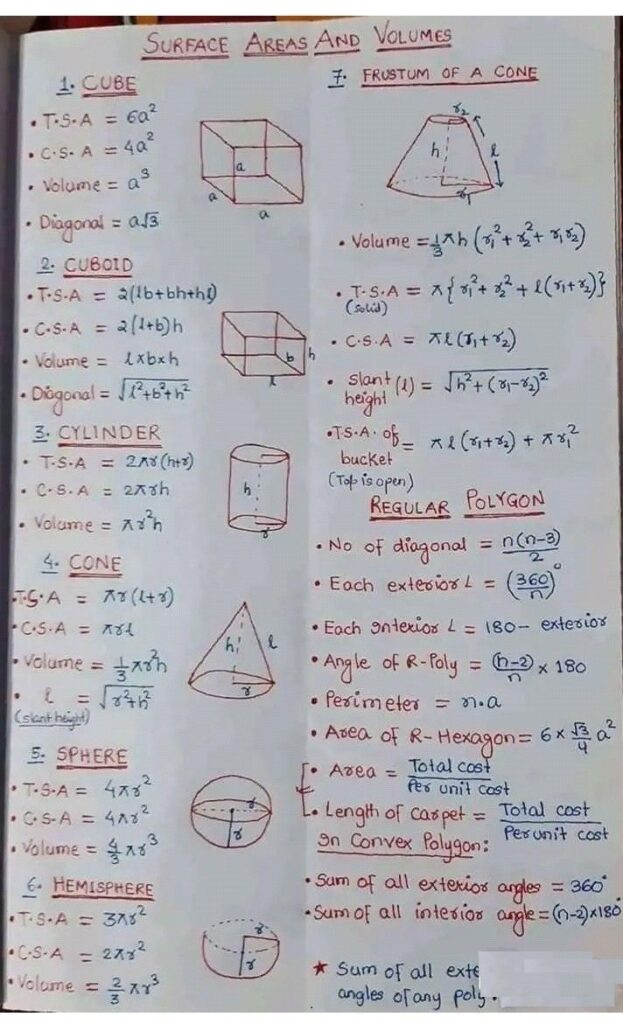 SURFACE AREAS AND VOLUMES
1. CUBE
• T.S.A = 6a²
• C.S.A = 4a²
• Volume = a³
• Diagonal = a√3
a
a
a
2. CUBOID
• T.S.A = 2(lb+bh+hl)
• C.S.A = 2(l+b)h
• Volume = l×b×h
• Diagonal = √l²+b²+h²
b
h
l
3. CYLINDER
• T.S.A = 2πr(h+r)
• C.S.A = 2πrh
• Volume = πr²h
h
r
4. CONE
• T.S.A = πr(l+r)
• C.S.A = πrl
• Volume = 1/3 πr²h
• l = √r²+h²
(slant height)
h
l
r
5. SPHERE
• T.S.A = 4πr²
• C.S.A = 4πr²
• Volume = 4/3 πr³
r
r
6. HEMISPHERE
• T.S.A = 3πr²
• C.S.A = 2πr²
• Volume = 2/3 πr³
r
r
7. FRUSTUM OF A CONE
r₂
h
l
r₁
• Volume = 1/3 πh (r₁²+r₂²+r₁r₂)
• T.S.A = π{r₁²+r₂²+l(r₁+r₂)}
(solid)
• C.S.A = πl(r₁+r₂)
• slant (l) = √h²+(r₁-r₂)²
height
• T.S.A. of = πl(r₁+r₂) + πr₁²
bucket
(Top is open)
REGULAR POLYGON
• No of diagonal = n(n-3)/2
• Each exterior ∠ = (360/n)°
• Each Interior ∠ = 180 - exterior
• Angle of R-Poly = (n-2)/n × 180
• Perimeter = n.a
• Area of R-Hexagon = 6 × √3/4 a²
• Area = Total cost/Per unit cost
• Length of carpet = Total cost/Per unit cost
In Convex Polygon:
• Sum of all exterior angles = 360°
• Sum of all interior angle = (n-2)×180°
★ Sum of all exte
angles of any poly.